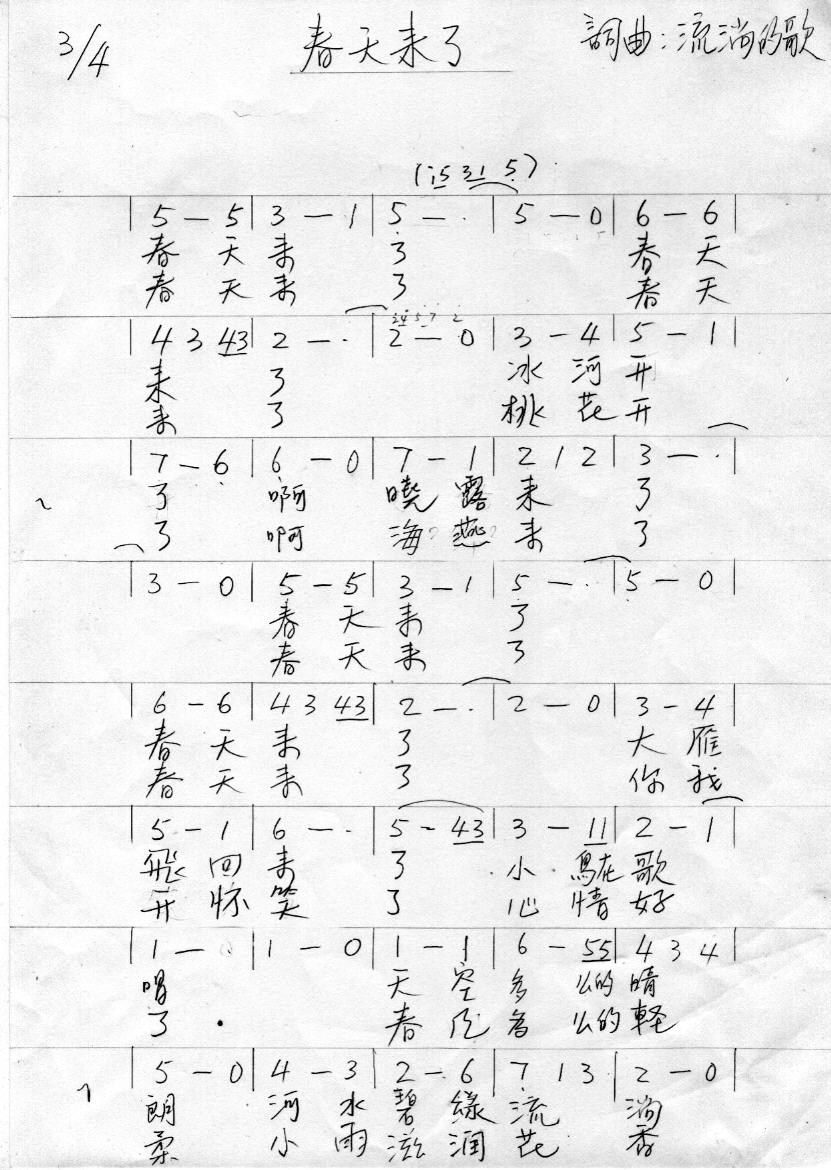 3/4 春天来了 詞曲:流淌的歌
(15 31 5)
| 5 — 5 | 3 — 1 | 5 — · | 5 — 0 | 6 — 6 |
春 天 来 了 春 天
春 天 来 了 春 天
| 4 3 43 | 2 — · | 2 — 0 | 3 — 4 | 5 — 1 |
来 了 冰 河 开
来 了 桃 花 开
| 7 — 6 | 6 — 0 | 7 — 1 | 2 1 2 | 3 — · |
了 啊 曉 露 来 了
了 啊 海 燕 来 了
| 3 — 0 | 5 — 5 | 3 — 1 | 5 — · | 5 — 0 |
春 天 来 了
春 天 来 了
| 6 — 6 | 4 3 43 | 2 — · | 2 — 0 | 3 — 4 |
春 天 来 了 大 雁
春 天 来 了 你 我
| 5 — 1 | 6 — · | 5 - 43 | 3 — 11 | 2 — 1 |
飛 回 来 了 小 鳥在 歌
开 怀 笑 了 心 情 好
| 1 — | 1 — 0 | 1 — 1 | 6 — 55 | 4 3 4 |
唱 天 空 多 么的 晴
了 春 多 么的 軽
| 5 — 0 | 4 — 3 | 2 — 6 | 7 1 3 | 2 — 0 |
朗 河 水 碧 緑 流 淌
柔 小 雨 滋 润 花 香